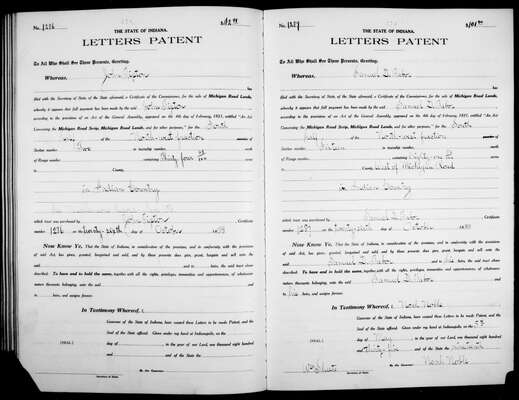 No. 1216
THE STATE OF INDIANA.
LETTERS PATENT
To All Who Shall See These Presents, Greeting.
Whereas,
has
filed with the Secretary of State the aforesaid, a Certificate of the Commissioner, for the sale of Michigan Road Lands,
whereby it appears that full payment has been made by the said John
according to the provisions of an Act of the General Assembly, approved on the 4th day of February, 1831, entitled "An Act
Concerning the Michigan Road Scrip, Michigan Road Lands, and for other purposes," for the South
half of the North-west fraction
Section number Two in township number
of Range number containing Thirty four acres
in County,
in Indian Country
which tract was purchased by Certificate
number 1216 on the twenty-sixth day of October
Now Know Ye, That the State of Indiana, in consideration of the premises, and in conformity with the provisions
of said Act, has given, granted, bargained and sold, and by these presents doe give, grant, bargain and sell unto the said
and to heirs, the said tract above
described. To have and to hold the same, together with all the rights, privileges, immunities and appurtenances, of whatsoever
nature thereunto belonging, unto the said
and to heirs, and assigns forever.
In Testimony Whereof, I,
Governor of the State of Indiana, have caused these Letters to be made Patent, and the
Seal of the State affixed. Given under my hand at Indianapolis, on the
(SEAL.) day of in the year of our Lord, one thousand eight hundred
and and of the State the
By the Governor:
Secretary of State.
No. 1287
THE STATE OF INDIANA.
LETTERS PATENT
To All Who Shall See These Presents, Greeting.
Whereas, Samuel
has
filed with the Secretary of State the aforesaid, a Certificate of the Commissioner, for the sale of Michigan Road Lands,
whereby it appears that full payment has been made by the said Samuel
according to the provisions of an Act of the General Assembly, approved on the 4th day of February, 1831, entitled "An Act
Concerning the Michigan Road Scrip, Michigan Road Lands, and for other purposes," for the South
half of the North-west fraction
Section number in township number
of Range number containing Eighty-one acres
in County, West of Michigan Road
in Indian Country
which tract was purchased by Samuel Certificate
number 1287 on the twenty-sixth day of October
Now Know Ye, That the State of Indiana, in consideration of the premises, and in conformity with the provisions
of said Act, has given, granted, bargained and sold, and by these presents doe give, grant, bargain and sell unto the said
Samuel and to his heirs, the said tract above
described. To have and to hold the same, together with all the rights, privileges, immunities and appurtenances, of whatsoever
nature thereunto belonging, unto the said Samuel
and to his heirs, and assigns forever.
In Testimony Whereof, I, Noah Noble
Governor of the State of Indiana, have caused these Letters to be made Patent, and the
Seal of the State affixed. Given under my hand at Indianapolis, on the
(SEAL.) day of May in the year of our Lord, one thousand eight hundred
and thirty six and of the State the nineteenth
By the Governor: Noah Noble
Secretary of State.